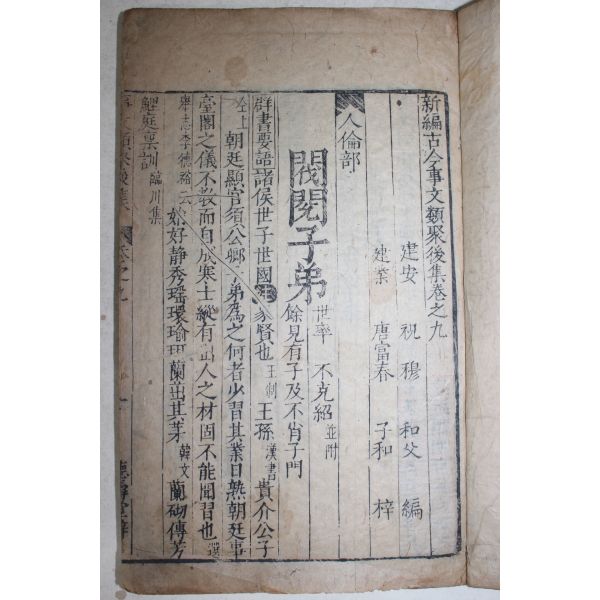 新編古今事文類聚後集卷之九
建安 祝穆 和父 編
建業 唐富春 子和 梓
人倫部
閥閱子弟 世率 不克紹 並附
餘見有子及不肖子門
群書要語諸侯世子世國 家賢也 王制 王孫 漢書 貴介公子
仝上 朝廷顯官須公卿 弟為之何者少習其業目熟朝廷事
臺閣之儀不教而自成寒士縱有 人之材固不能閑習也 選
舉志李德裕云 好靜秀瑶環瑜珥蘭茁其芽 韓文 蘭砌傳芳
鯉庭稟訓 臨川集